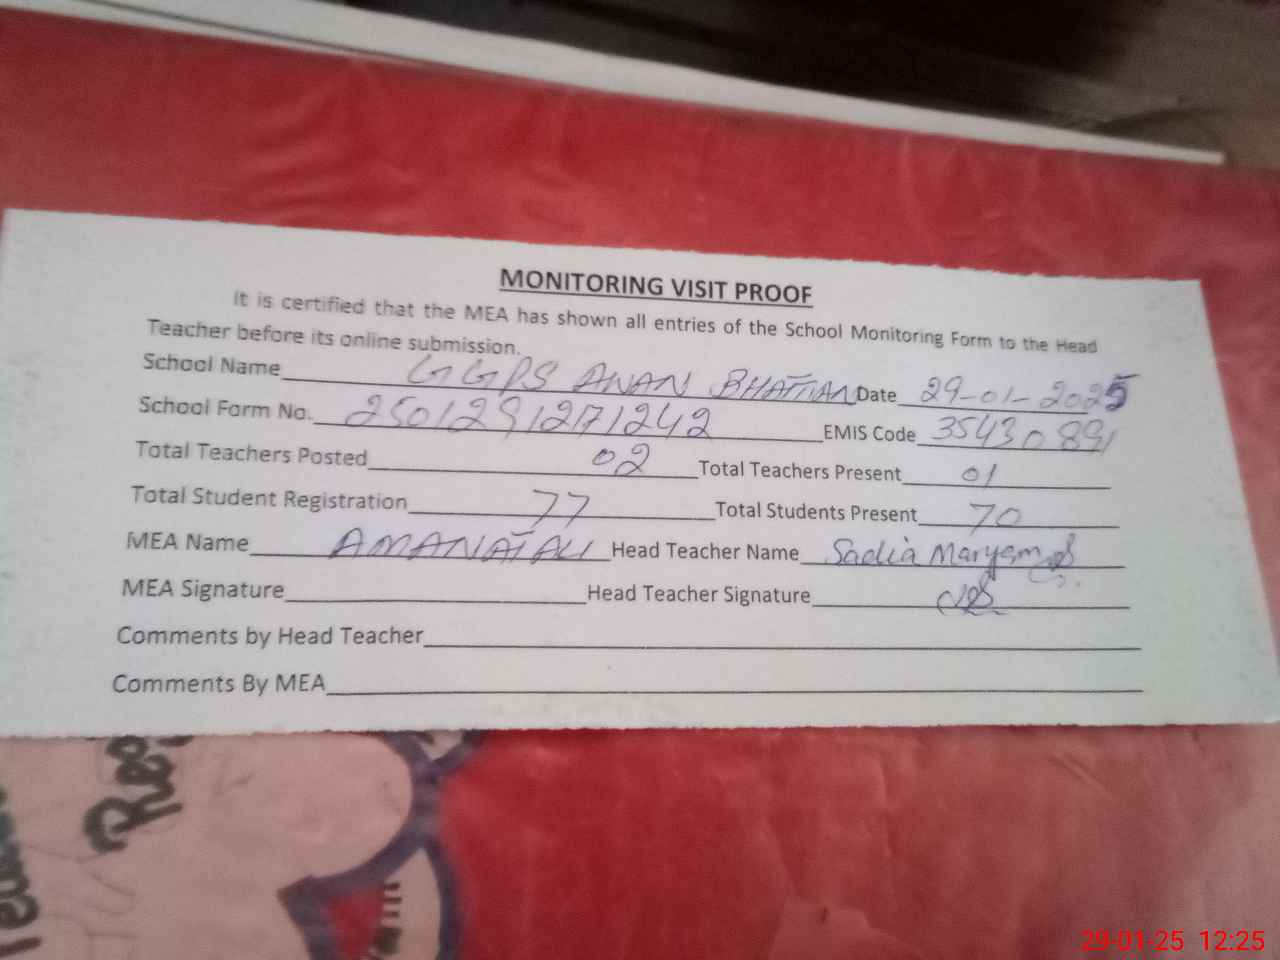 MONITORING VISIT PROOF
It is certified that the MEA has shown all entries of the School Monitoring Form to the Head
Teacher before its online submission.
School Name GGPS AWAN BHATTIAN Date 29-01-2025
School Form No. 25012912171242 EMIS Code 35430891
Total Teachers Posted 02 Total Teachers Present 01
Total Student Registration 77 Total Students Present 70
MEA Name AMANAT ALI Head Teacher Name Sadia Maryam
MEA Signature Head Teacher Signature
Comments by Head Teacher
Comments By MEA
29-01-25 12:25